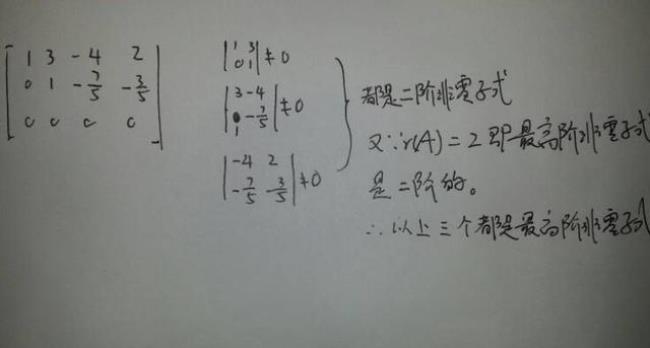 1 3 -4 2
0 1 -7/5 -3/5
0 0 0 0
|1 3|
|0 1| ≠0
|3 -4|
|1 -7/5| ≠0
|-4 2|
|-7/5 -3/5| ≠0
都是二阶非零子式
又∵r(A)=2即最高阶非零子式
是二阶的。
∴以上三个都是最高阶非零子式